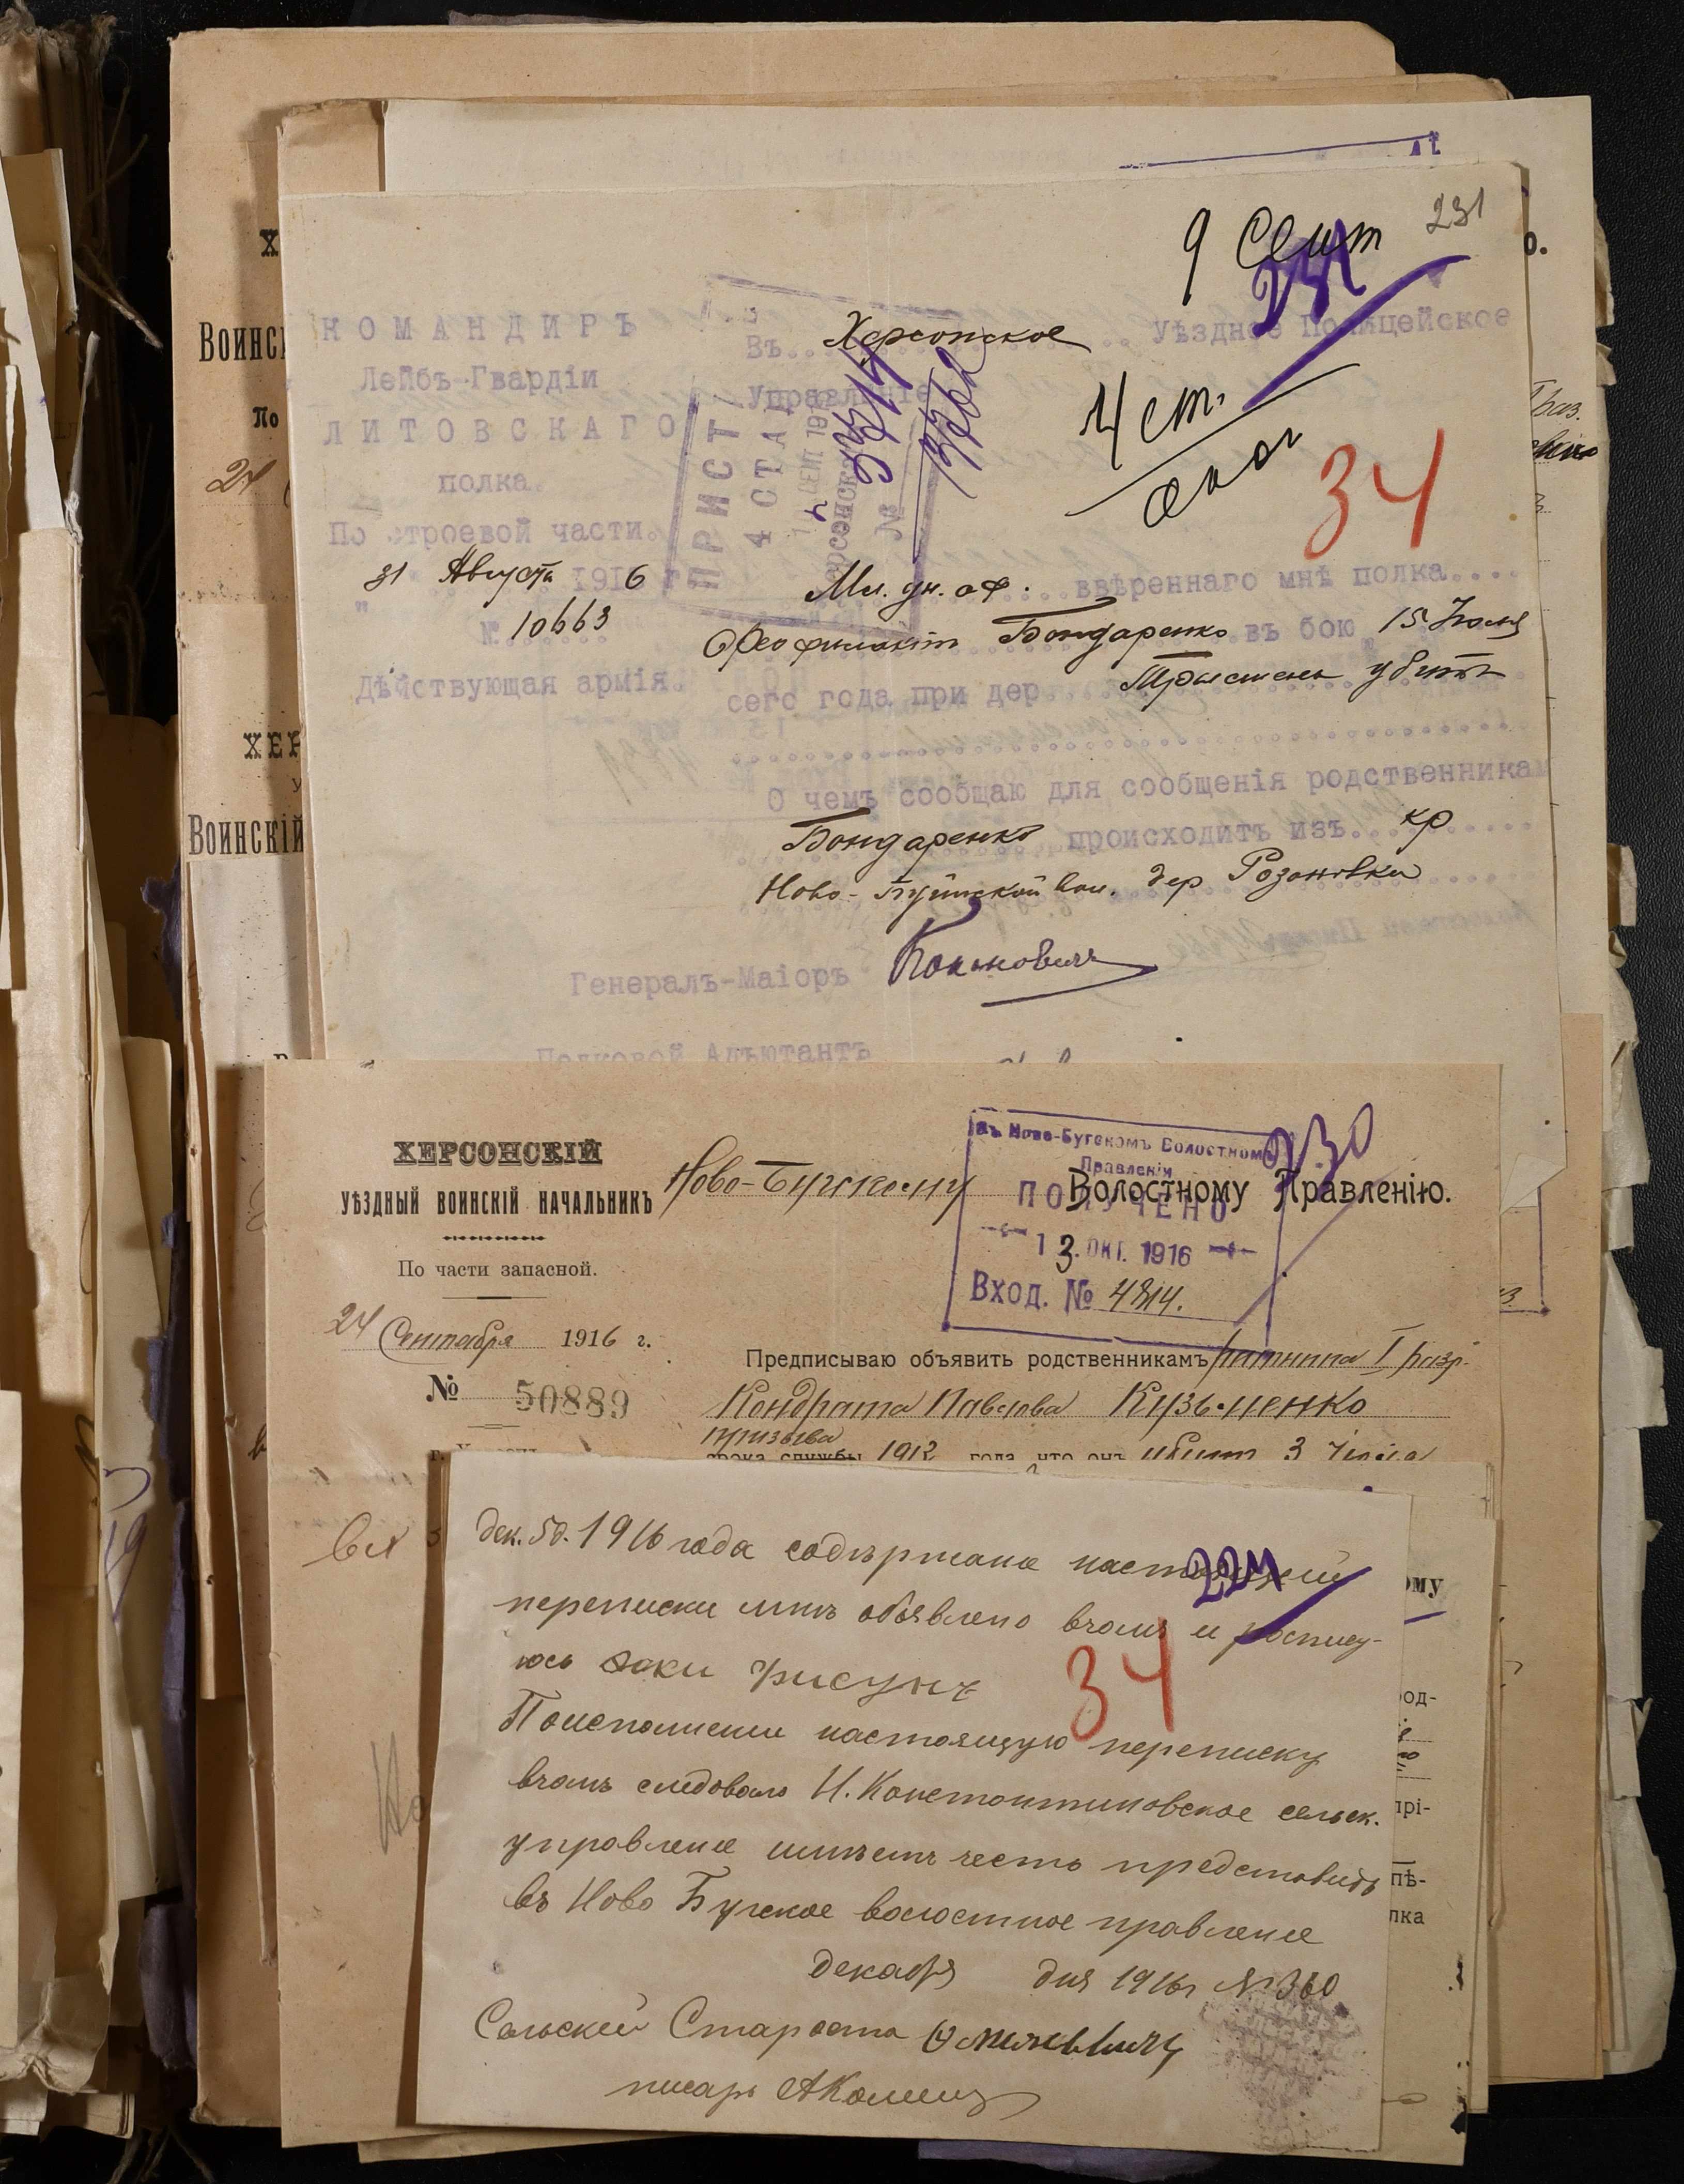 231
9 Сент
231
КОМАНДИРЪ
Лейбъ-Гвардіи
ЛИТОВСКАГО
полка.
По строевой части.
31 Августа 1916 г.
№ 10663
Дѣйствующая армія.
Въ Херсонское Уѣздное Полицейское
Управленіе
ПРИСТ
4 СТАН
№ 13762
4 ст.
34
Мл. ун. оф. ввѣреннаго мнѣ полка
Феофилактъ Бондаренко въ бою 15 Іюля
сего года при дер. Трыстень убитъ
О чемъ сообщаю для сообщенія родственника
Бондаренко происходитъ изъ кр
Ново-Бугской вол. дер Розановки
Генералъ-Маіоръ
Полковой Адъютантъ
Воинск
По
24
ХЕР
Воинскій
ХЕРСОНСКІЙ
УѢЗДНЫЙ ВОИНСКІЙ НАЧАЛЬНИКЪ
По части запасной.
24 Сентября 1916 г.
№ 50889
230
Ново-Бугскому Волостному Правленію.
Въ Ново-Бугскомъ Волостномъ
Правленіи
ПОЛУЧЕНО
13. ОКТ. 1916
Вход. № 4814.
Предписываю объявить родственникамъ ратника I разр.
Кондрата Павлова Кузьменко
призыва
срока службы 1912 года, что онъ убит 3 Іюля
227
дек. 5д. 1916 года содержание настоящей
переписки мнѣ объявлено вчомъ и роспису-
юсь
34
Поисполнении настоящую переписку
вчомъ следовало Н. Константиновское сельск.
управление имѣетъ честь представить
въ Ново Бугское волостное правление
декабря дня 1916г № 360
Сельский Староста
писарь